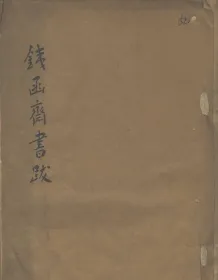 鐵函齋書跋